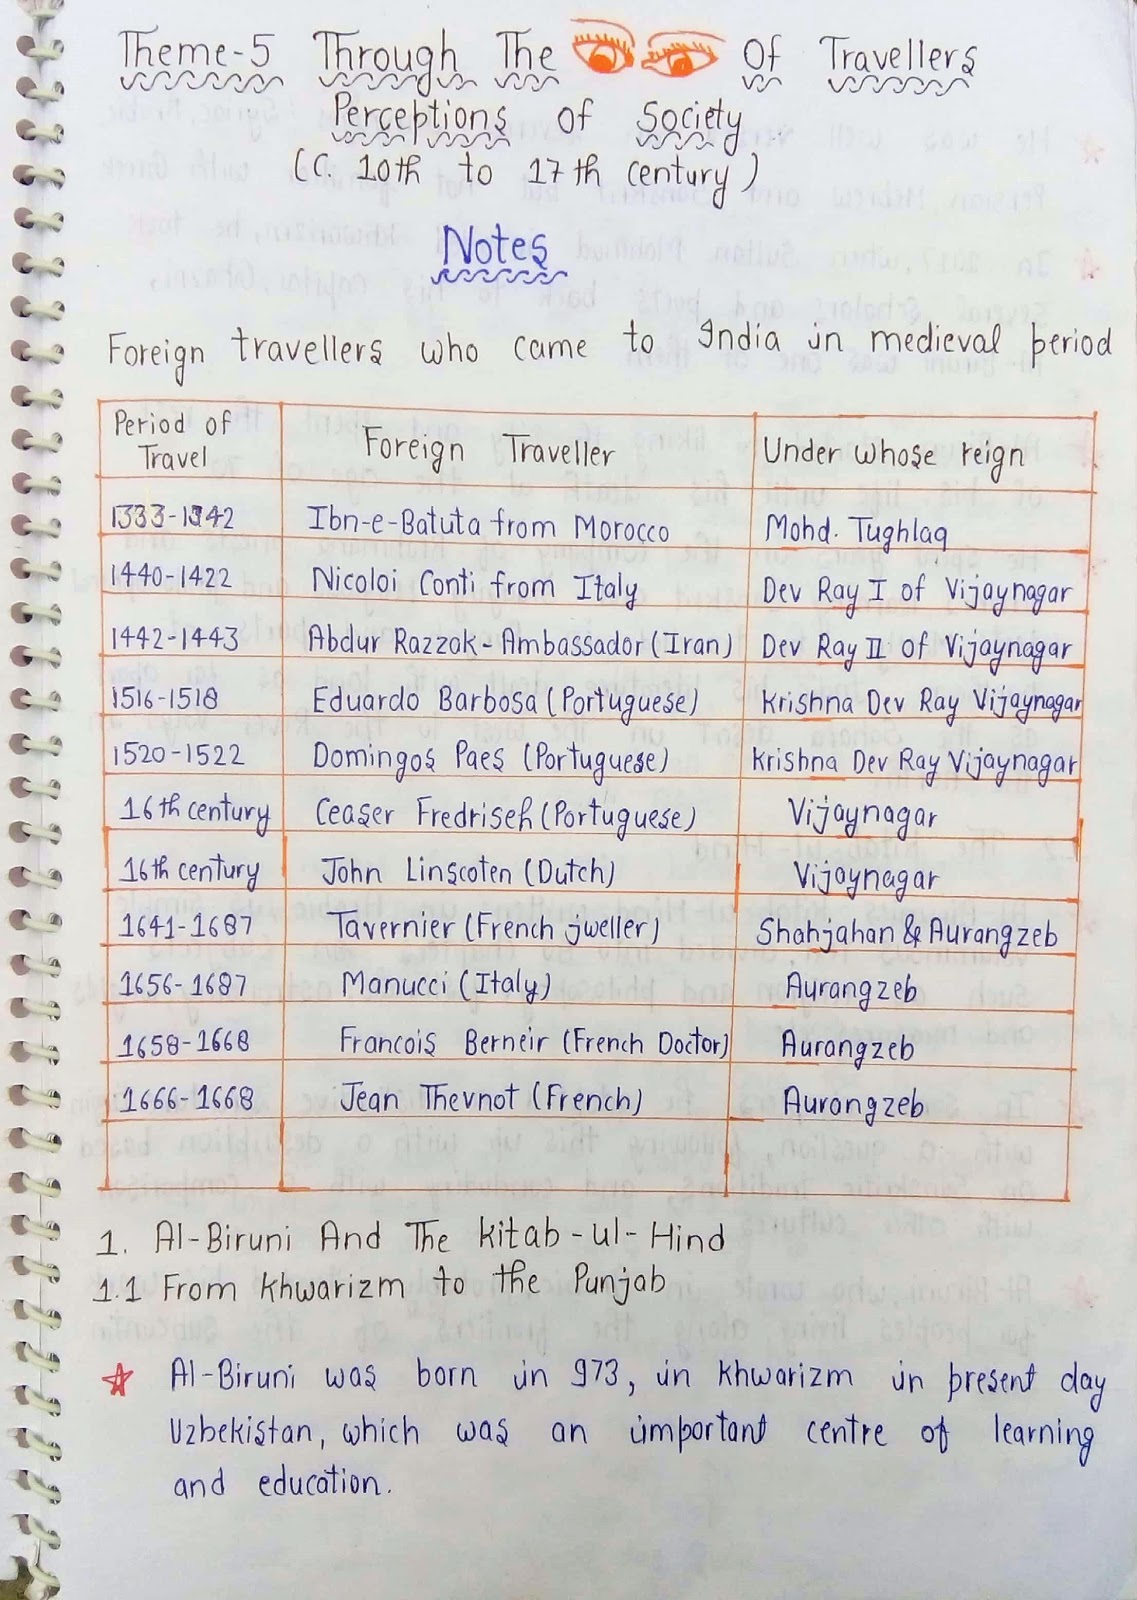 Theme-5 Through The Of Travellers
Perceptions of Society
(C. 10th to 17th century)
Notes
Foreign travellers who came to India in medieval period
Period of Travel Foreign Traveller Under whose reign
1333-1342 Ibn-e-Batuta from Morocco Mohd. Tughlaq
1440-1422 Nicoloi Conti from Italy Dev Ray I of Vijaynagar
1442-1443 Abdur Razzak-Ambassador (Iran) Dev Ray II of Vijaynagar
1516-1518 Eduardo Barbosa (Portuguese) Krishna Dev Ray Vijaynagar
1520-1522 Domingos Paes (Portuguese) Krishna Dev Ray Vijaynagar
16th century Ceaser Fredriseh (Portuguese) Vijaynagar
16th century John Linscoten (Dutch) Vijaynagar
1641-1687 Tavernier (French jweller) Shahjahan & Aurangzeb
1656-1687 Manucci (Italy) Aurangzeb
1658-1668 Francois Berneir (French Doctor) Aurangzeb
1666-1668 Jean Thevnot (French) Aurangzeb
1. Al-Biruni And The Kitab-ul-Hind
1.1 From Khwarizm to the Punjab
Al-Biruni was born in 973, in Khwarizm in present day
Uzbekistan, which was an important centre of learning
and education.